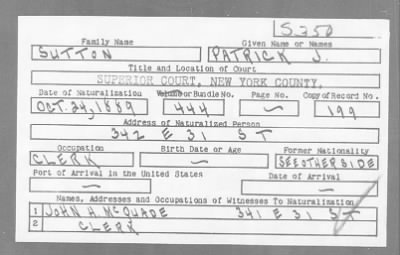 S350
Family Name Given Name or Names
SUTTON PATRICK J.
Title and Location of Court
SUPERIOR COURT, NEW YORK COUNTY.
Date of Naturalization Volume or Bundle No. Page No. Copy of Record No.
OCT. 24, 1889 444 — 199
Address of Naturalized Person
342 E 31 ST
Occupation Birth Date or Age Former Nationality
CLERK — SEE OTHER SIDE
Port of Arrival in the United States Date of Arrival
— —
Names, Addresses and Occupations of Witnesses To Naturalization
1 JOHN H. McQUADE 341 E 31 ST
2 CLERK